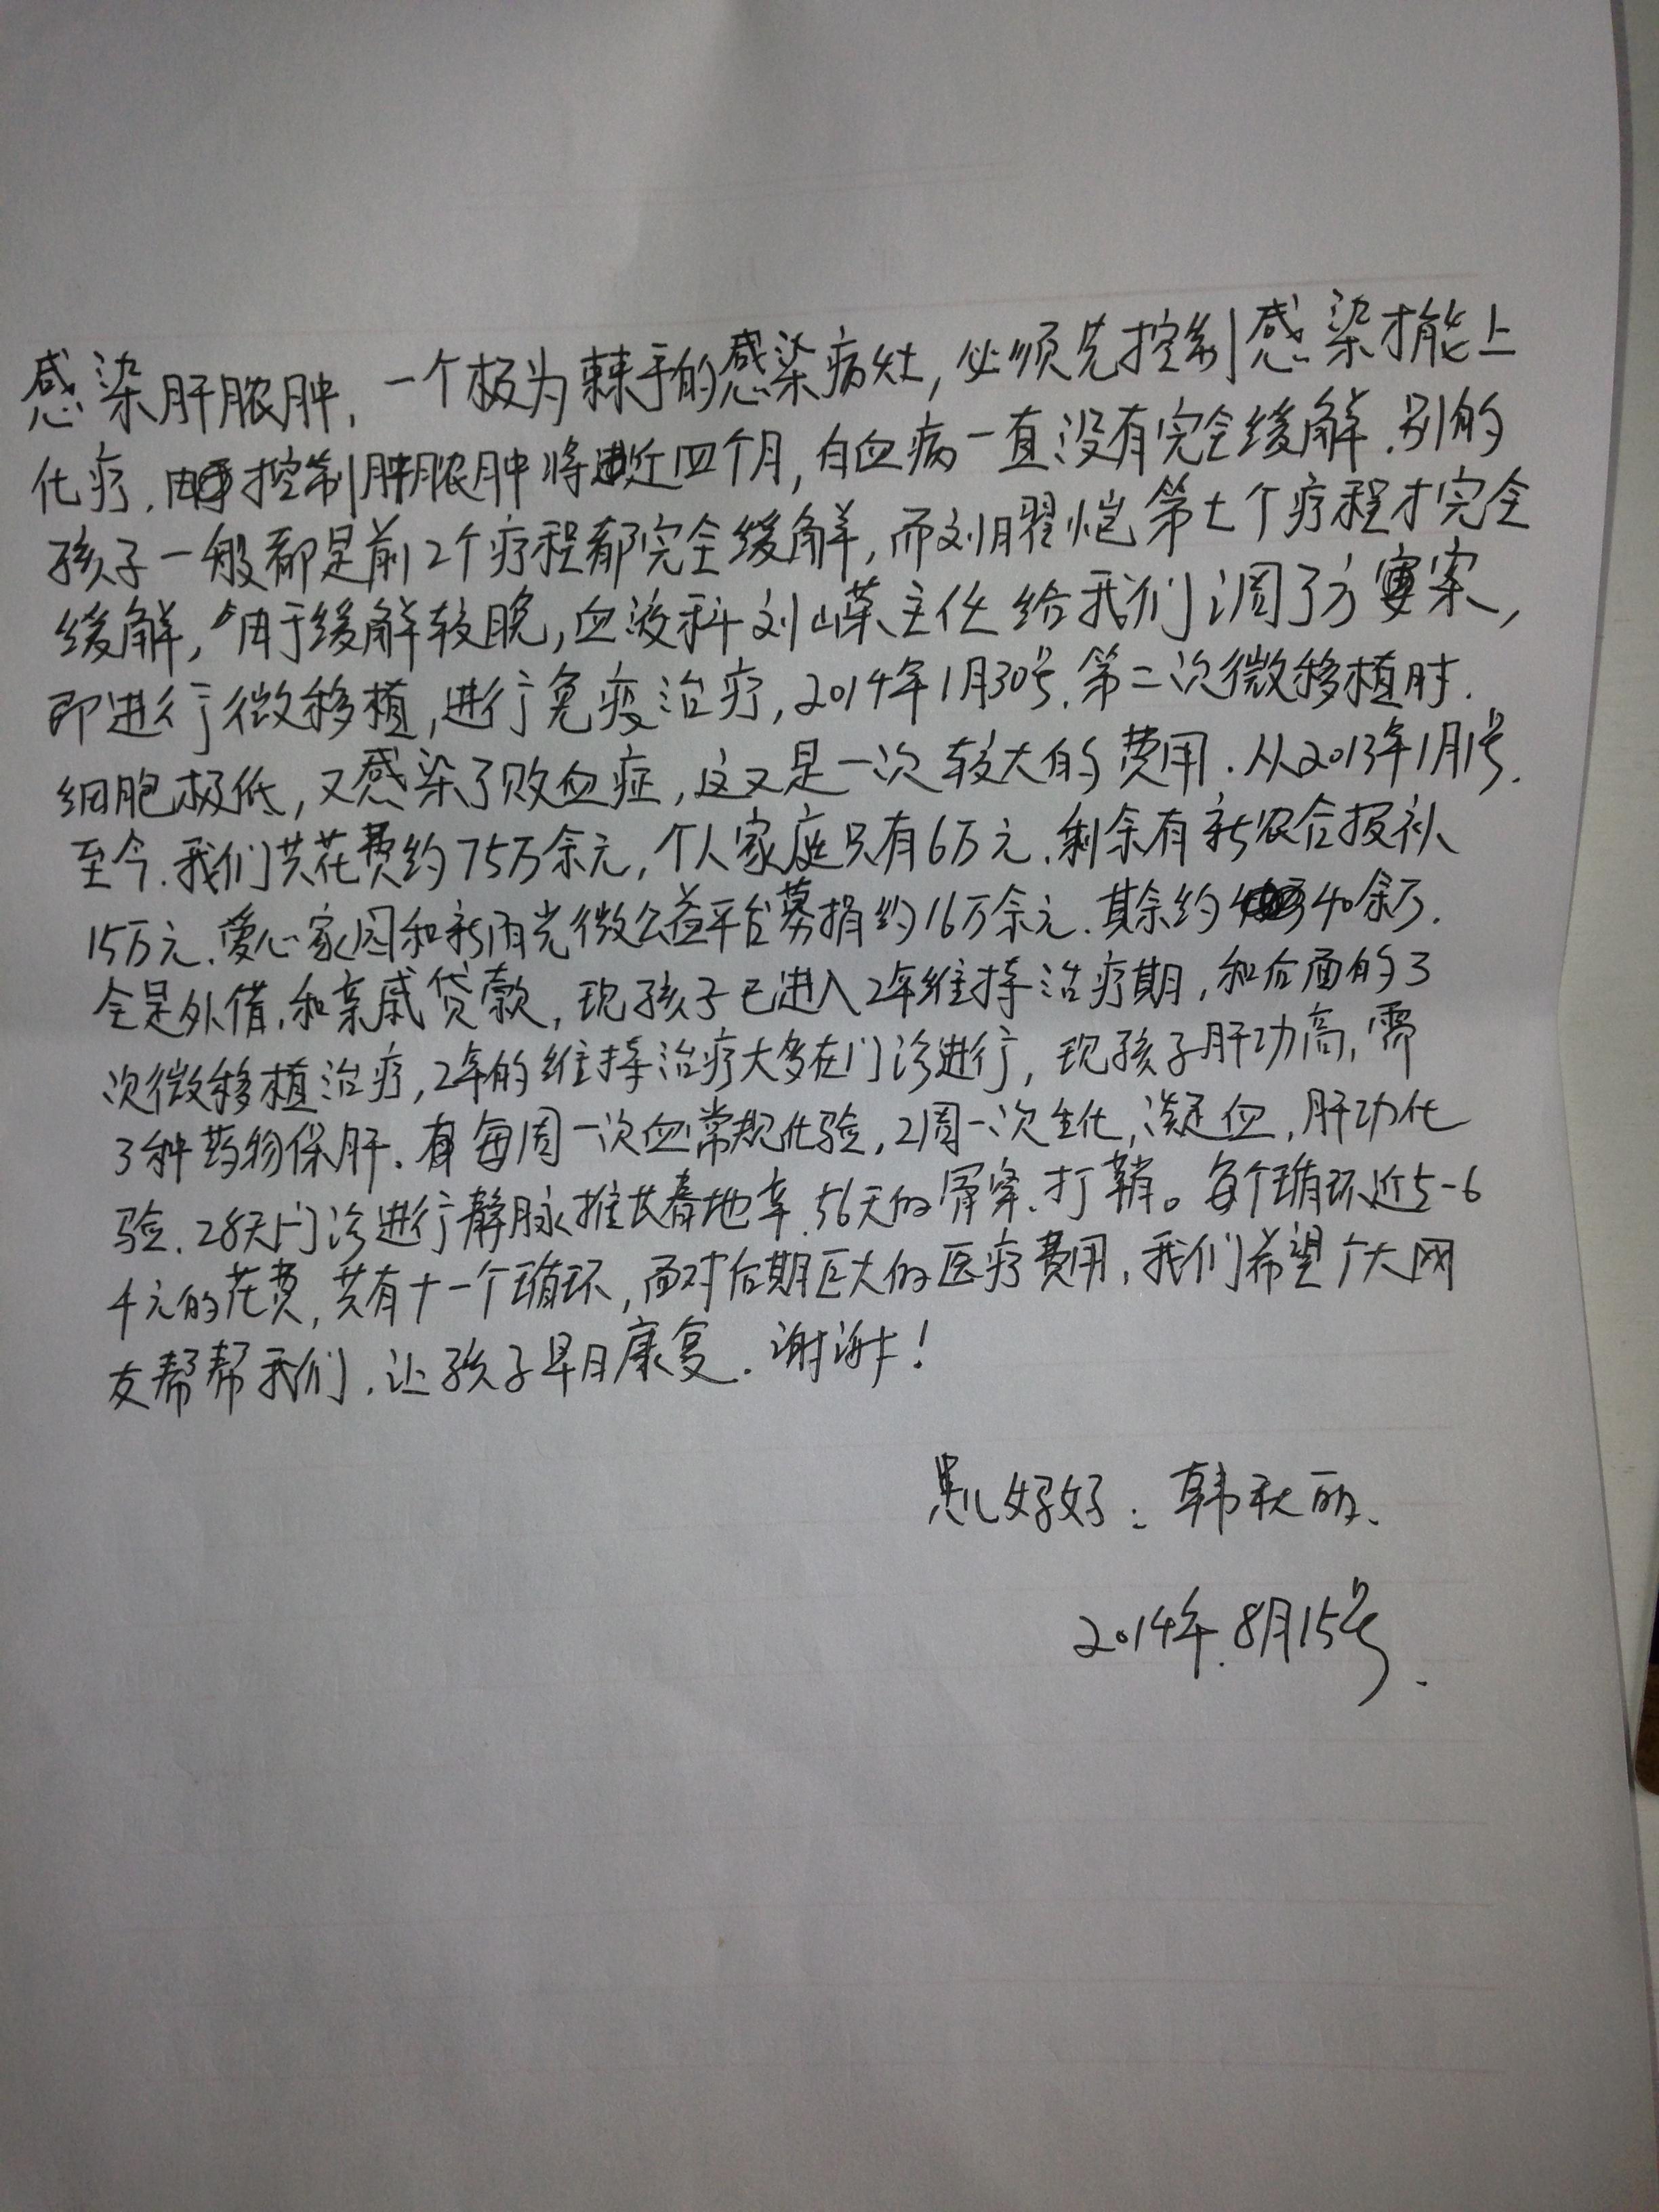 感染肝脓肿，一个极为棘手的感染病灶，必须先控制感染才能上
化疗，由于控制肝脓肿将近四个月，白血病一直没有完全缓解.别的
孩子一般都是前2个疗程都完全缓解，而刘曜恺第七个疗程才完全
缓解，由于缓解较晚，血液科刘嵘主任给我们调了方案，
即进行微移植，进行免疫治疗，2014年1月30号.第二次微移植时.
细胞极低，又感染了败血症，这又是一次较大的费用.从2013年1月1号.
至今.我们共花费约75万余元，个人家庭只有6万元.剩余有新农合报补
15万元.爱心家园和新阳光微公益平台募捐约16万余元.其余约40余万.
全是外借，和亲戚贷款，现孩子已进入2年维持治疗期，和后面的3
次微移植治疗，2年的维持治疗大多在门诊进行，现孩子肝功高，需
3种药物保肝.每周一次血常规化验，2周一次生化，凝血，肝功化
验.28天门诊进行静脉推长春地辛.56天的骨穿、打鞘。每个循环近5-6
千元的花费，共有十一个循环，面对后期巨大的医疗费用，我们希望广大网
友帮帮我们，让孩子早日康复.谢谢！
患儿妈妈：韩秋丽.
2014年.8月15号.